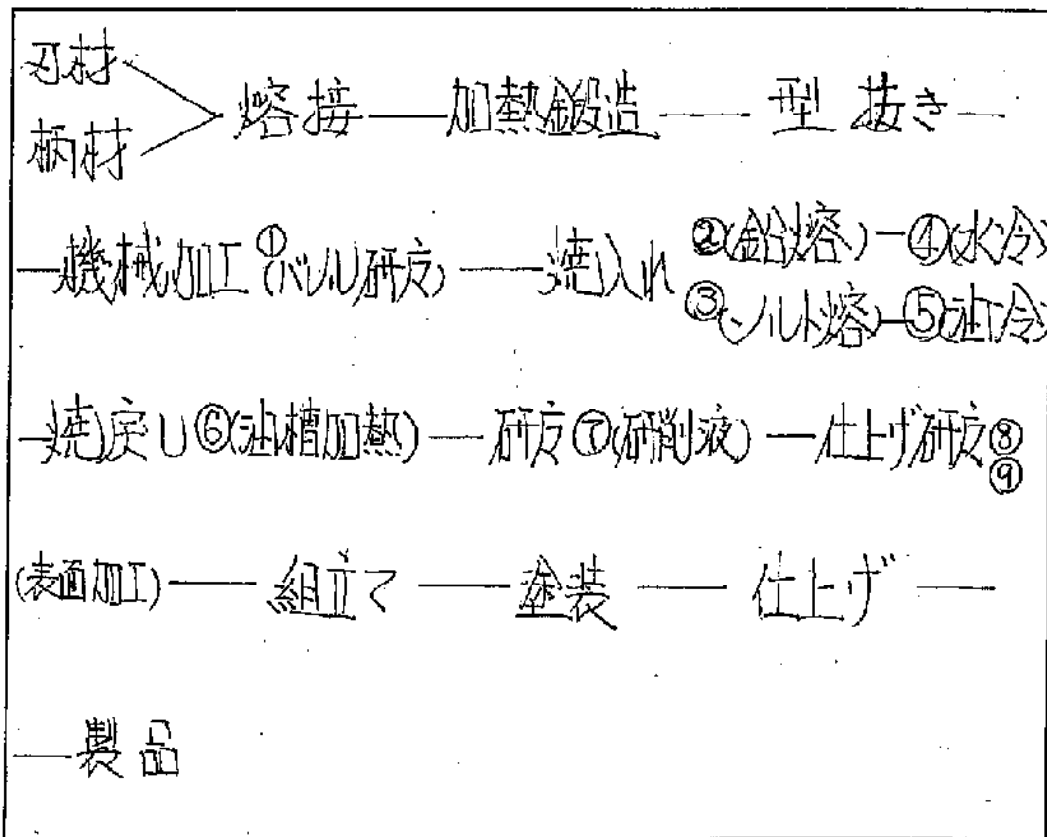 刃材
柄材
熔接 ― 加熱鍛造 ― 型抜き ―
―機械加工①(バレル研摩) ― 焼入れ ②(鉛熔) ― ④(水冷)
③(ソルト熔) ― ⑤(油冷)
―焼戻し⑥(油槽加熱) ― 研摩⑦(研削液) ― 仕上げ研摩⑧
⑨
(表面加工) ― 組立て ― 塗装 ― 仕上げ ―
―製品